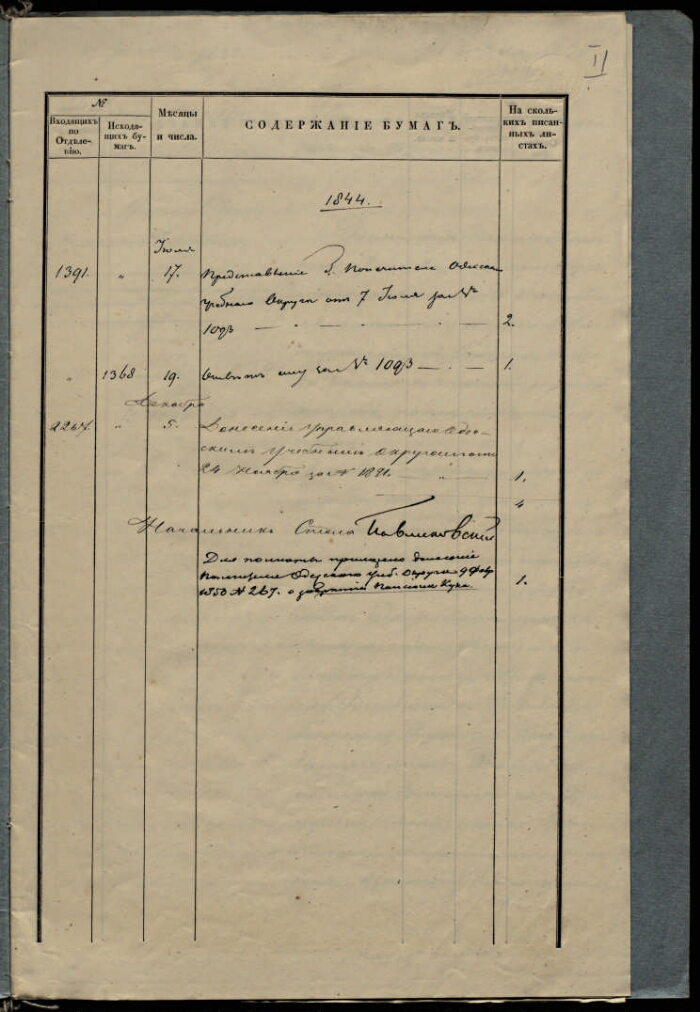 II
№
Входящихъ по Отдѣленію.
Исходящихъ бумагъ.
Мѣсяцы и числа.
СОДЕРЖАНІЕ БУМАГЪ.
На сколькихъ писанныхъ листахъ.
1844.
Іюля
1391. " 17. Представленіе Г. Попечителя Одесскаго
Учебнаго Округа отъ 7 Іюля за №
1093 2.
" 1368 19. Отвѣтъ ему за № 1093 1.
Декабря
2267. " 5. Донесеніе Управляющаго Одес-
скимъ Учебнымъ Округомъ отъ
24 Ноября за № 1821. 1.
4
Начальникъ Стола Павликовскій
Для полноты пріищено донесеніе
Попечителя Одесскаго учеб. Округа 9 Фев.
1850 № 267. о закрытіи Пансіона Кука. 1.